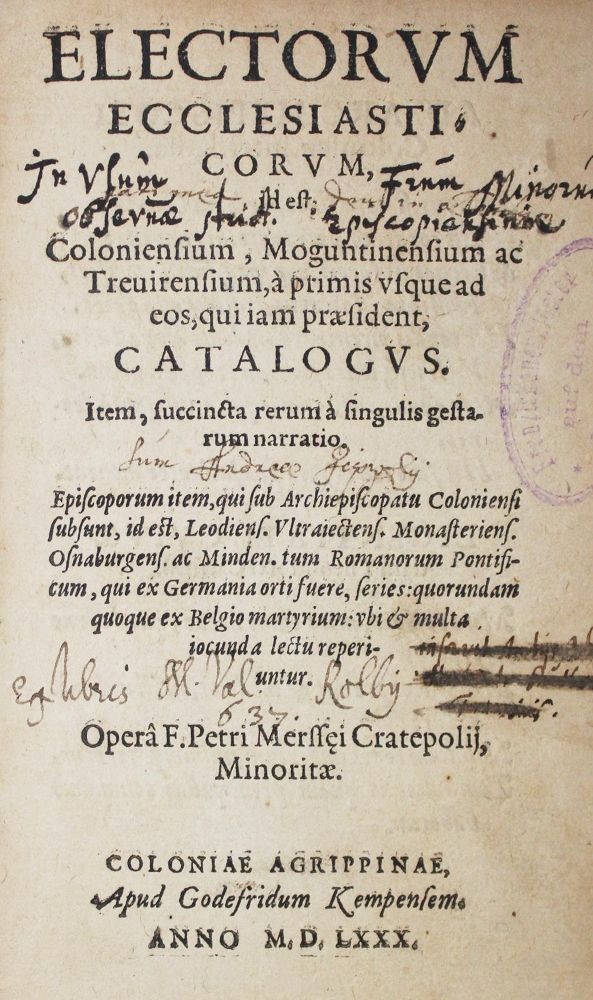 ELECTORVM
ECCLESIASTI-
CORVM,
In Vsum̃ id est, Frum̃ Minorum
obserũae stud.
Coloniensium, Moguntinensium ac
Treuirensium, à primis vsque ad
eos, qui iam præsident,
CATALOGVS.
Item, succincta rerum à singulis gesta-
rum narratio.
sum Andreae
Episcoporum item, qui sub Archiepiscopatu Coloniensi
subsunt, id est, Leodiens. Vltraiectens. Monasteriens.
Osnaburgens. ac Minden. tum Romanorum Pontifi-
cum, qui ex Germania orti fuere, series: quorundam
quoque ex Belgio martyrium: vbi & multa
iocunda lectu reperi-
untur.
Ex libris M. Val. Rolby
637.
Operâ F. Petri Merssęi Cratepolij,
Minoritæ.
COLONIAE AGRIPPINAE,
Apud Godefridum Kempensem.
ANNO M. D. LXXX.